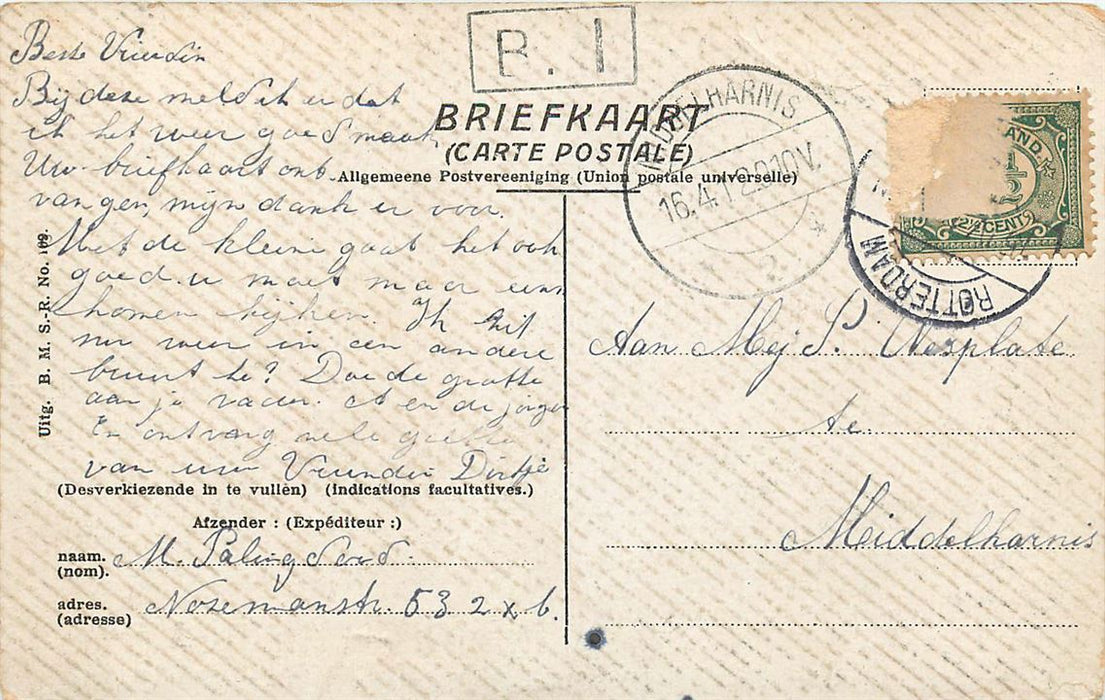 B. I
BRIEFKAART
(CARTE POSTALE)
Allgemeene Postvereeniging (Union postale universelle)
MIDDELHARNIS
16.4.12 9.10V.
ROTTERDAM
2½
2½ CENT
Beste Vriendin
Bij deze meld ik u dat
ik het weer goed maak
Uw briefkaart ont
vangen, mijn dank er voor.
Met de kleine gaat het ook
goed. u moet maar eens
komen kijken. Ik zit
nu weer in een andere
buurt he? Doe de groete
aan je vader. A en de jongen
En ontvang vele groete
van uw Vriendin Dirkje
(Desverkiezende in te vullen) (indications facultatives.)
Afzender : (Expéditeur :)
naam. M. Paling
(nom).
adres. Nozemanstr. 53 2 x b.
(adresse)
Uitg. B. M. S.-R. No. 169.
Aan Mej S. Wesplate
te
Middelharnis